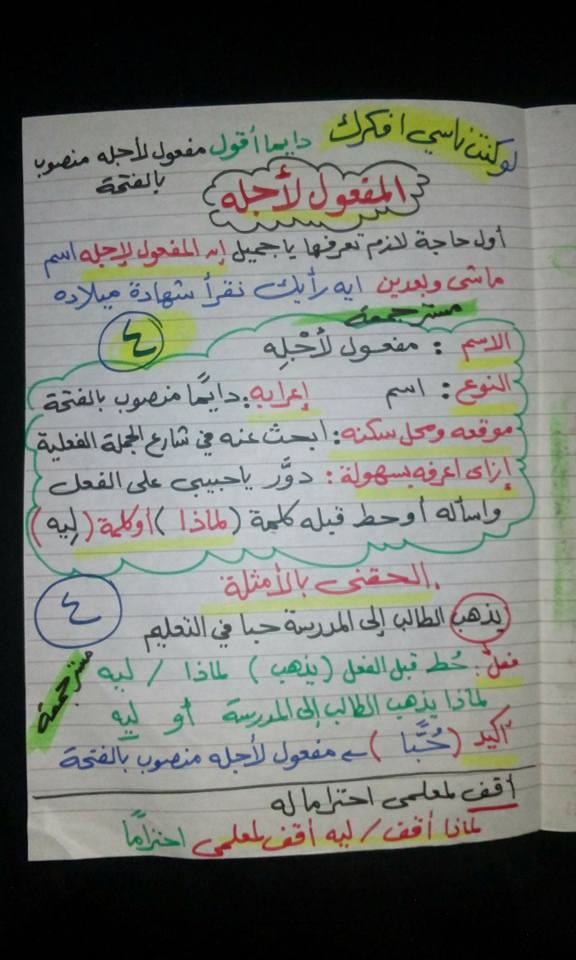 لو كنت ناسي افكرك دايما أقول مفعول لأجله منصوب بالفتحة
المفعول لأجله
أول حاجة لازم تعرفها يا جميل إنه المفعول لإجله اسم
ماشى وبعدين ايه رأيك نقرأ شهادة ميلاده
مستر جمعة
٤
الاسم : مفعول لأجْلِه
النوع : اسم إعرابه : دايمًا منصوب بالفتحة
موقعه ومحل سكنه : ابحث عنه في شارع الجملة الفعلية
إزاى اعرفه بسهولة : دوَّر ياحبيبى على الفعل
واسأله أو حط قبله كلمة ( لماذا ) أو كلمة ( لِيه )
الحقنى بالأمثلة
٤
يذهب الطالب إلى المدرسة حبا في التعليم
فعل : حُط قبل الفعل ( يذهب ) لماذا / ليه
لماذا يذهب الطالب إلى المدرسة أو ليه
مستر جمعة
أكيد ( حُبًّا ) مفعول لأجله منصوب بالفتحة
أقف لمعلمى احتراما له
لماذا أقف / ليه أقف لمعلمى احترامًا